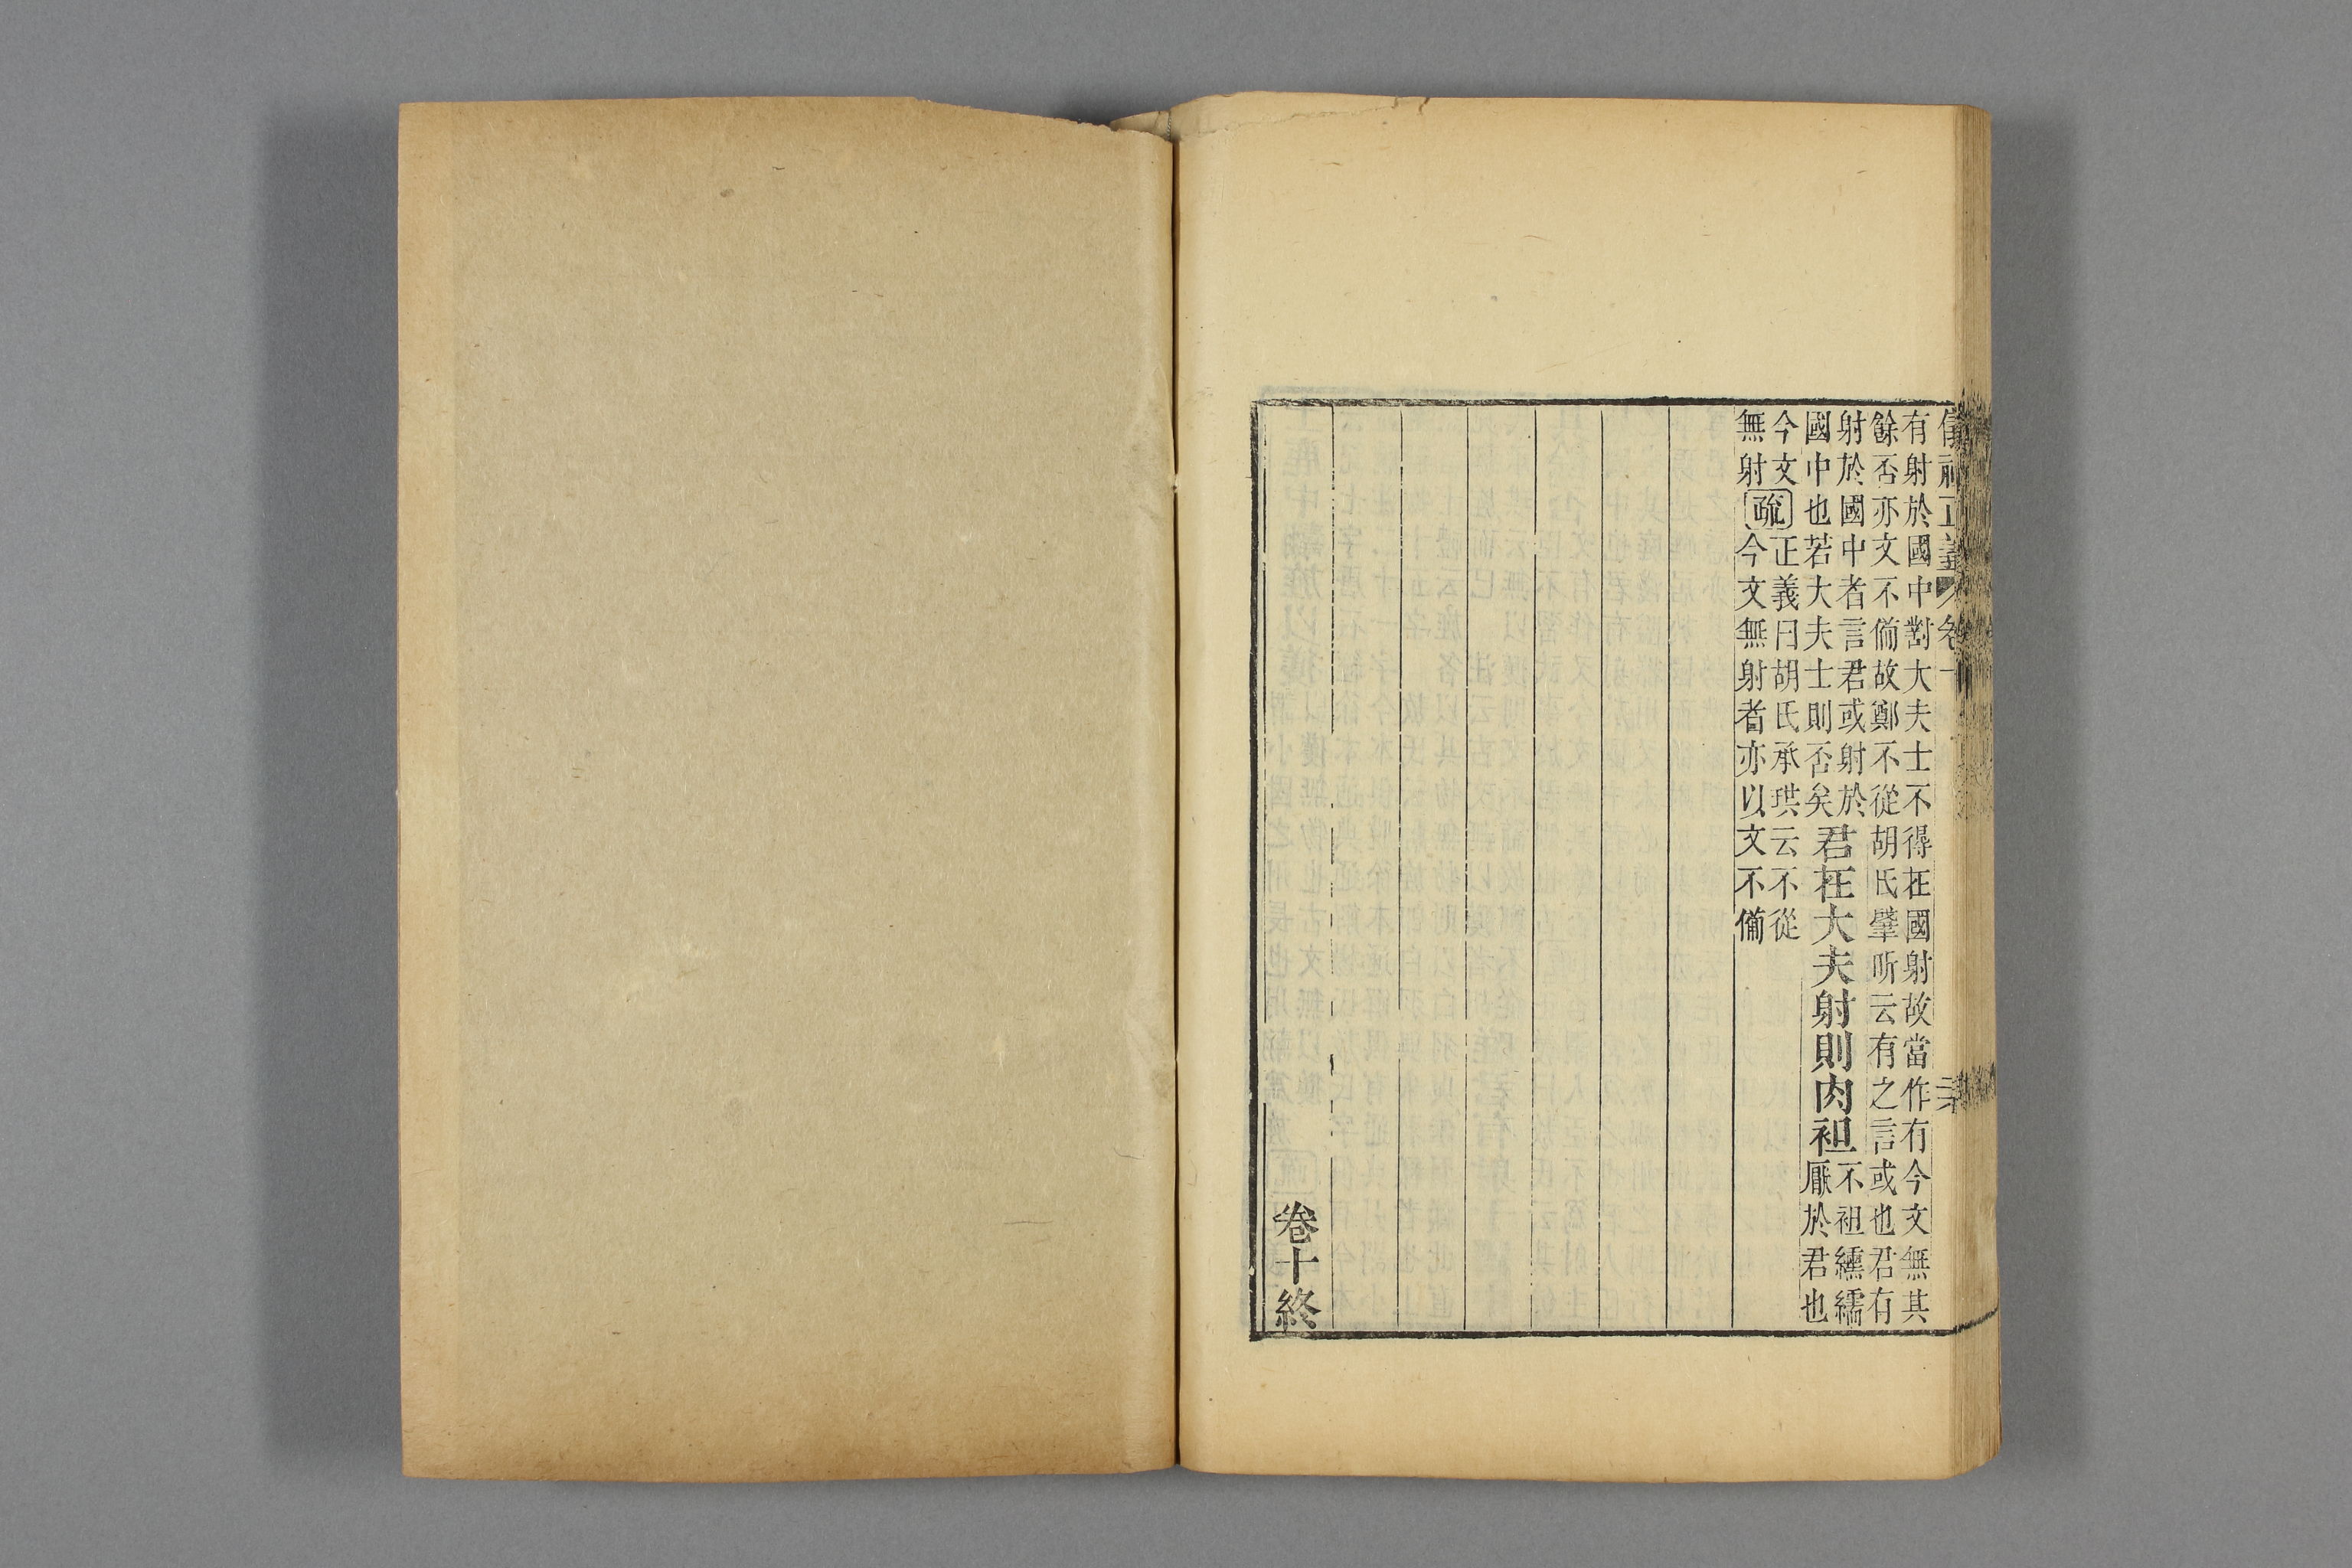 儀禮正義 卷十
有射於國中對大夫士不得在國射故當作有今文無其
餘否亦文不備故鄭不從胡氏肇昕云有之言或也君有
射於國中者言君或射於
國中也若大夫士則否矣
君在大夫射則肉袒
不袒纁襦
厭於君也
今文
無射
疏
正義曰胡氏承珙云不從
今文無射者亦以文不備
卷十終